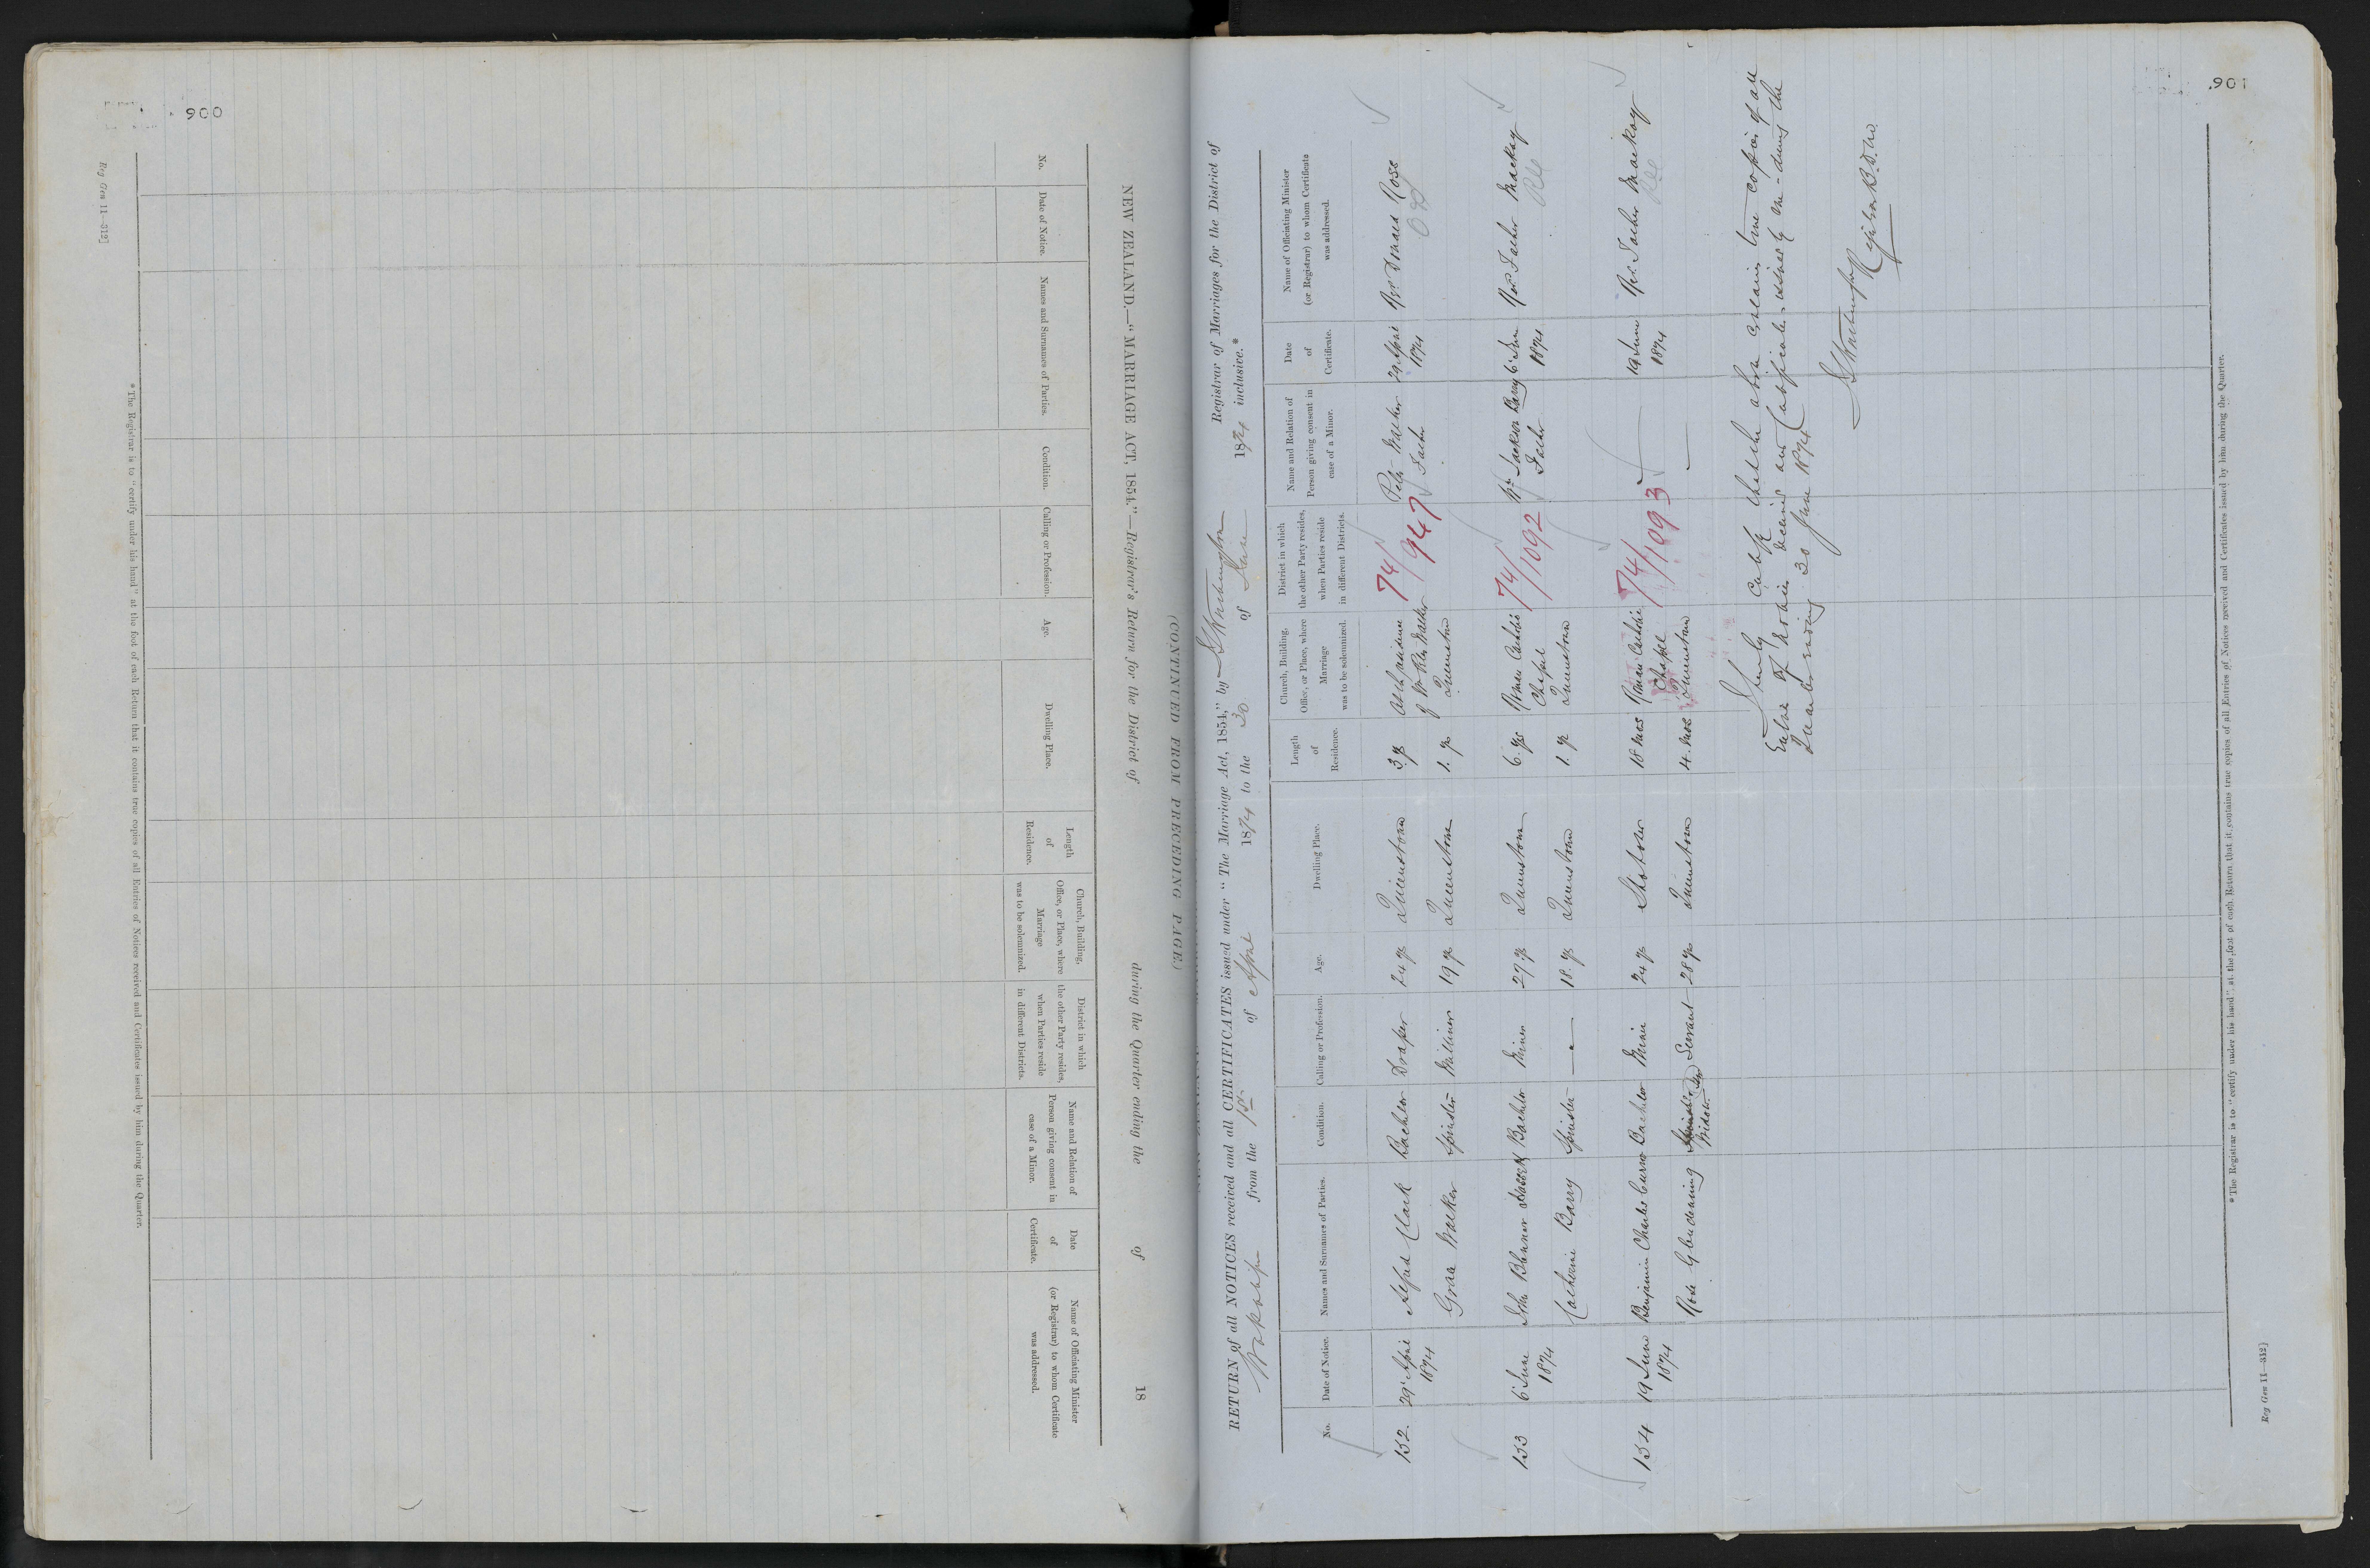 900
Reg Gen 11—312]
NEW ZEALAND.—"MARRIAGE ACT, 1854."—Registrar's Return for the District of during the Quarter ending the of 18
(CONTINUED FROM PRECEDING PAGE.)
No.
Date of Notice.
Names and Surnames of Parties.
Condition.
Calling or Profession.
Age.
Dwelling Place.
Length
of
Residence.
Church, Building,
Office, or Place, where
Marriage
was to be solemnized.
District in which
the other Party resides,
when Parties reside
in different Districts.
Name and Relation of
Person giving consent in
case of a Minor.
Date
of
Certificate.
Name of Officiating Minister
(or Registrar) to whom Certificate
was addressed.
* The Registrar is to "certify under his hand" at the foot of each Return that it contains true copies of all Entries of Notices received and Certificates issued by him during the Quarter.
901
RETURN of all NOTICES received and all CERTIFICATES issued under "The Marriage Act, 1854," by Registrar of Marriages for the District of
Wakatipu from the 1st of April 1874 to the 30 of June 1874 inclusive.*
No.
Date of Notice.
Names and Surnames of Parties.
Condition.
Calling or Profession.
Age.
Dwelling Place.
Length
of
Residence.
Church, Building,
Office, or Place, where
Marriage
was to be solemnized.
District in which
the other Party resides,
when Parties reside
in different Districts.
Name and Relation of
Person giving consent in
case of a Minor.
Date
of
Certificate.
Name of Officiating Minister
(or Registrar) to whom Certificate
was addressed.
132 29 April Alfred Clark Bachelor Draper 24 yrs Queenstown 3 yrs At the residence 74/947 Peter Walker 29 April Rev Donald Ross
1874 Grace Walker Spinster Milliner 19 yrs Queenstown 1. yr of Mr Peter Walker Father 1874
Queenstown
133 6 June John Blenner Bachelor Miner 29 yrs Queenstown 6. yrs Roman Catholic 74/1092 Jackson Barry 6 June Rev Father Mackay
1874 Catherine Barry Spinster — 18. yrs Queenstown 1. yr Chapel Father 1874
Queenstown
134 19 June Benjamin Charles Bachelor Miner 24 yrs Shotover 18 mos Roman Catholic 74/1093 — 19 June Rev. Father Mackay
1874 Rose Glendening Spinster Servant 28 yrs Queenstown 4. mos Chapel — 1874
Widow Queenstown
I hereby certify that the above contains true copies of all
Entries of Notices received and Certificates issued by me during the
Quarter ending 30 June 1874
Registrar B. D. M.
* The Registrar is to "certify under his hand" at the foot of each Return that it contains true copies of all Entries of Notices received and Certificates issued by him during the Quarter.
Reg Gen 11—312]